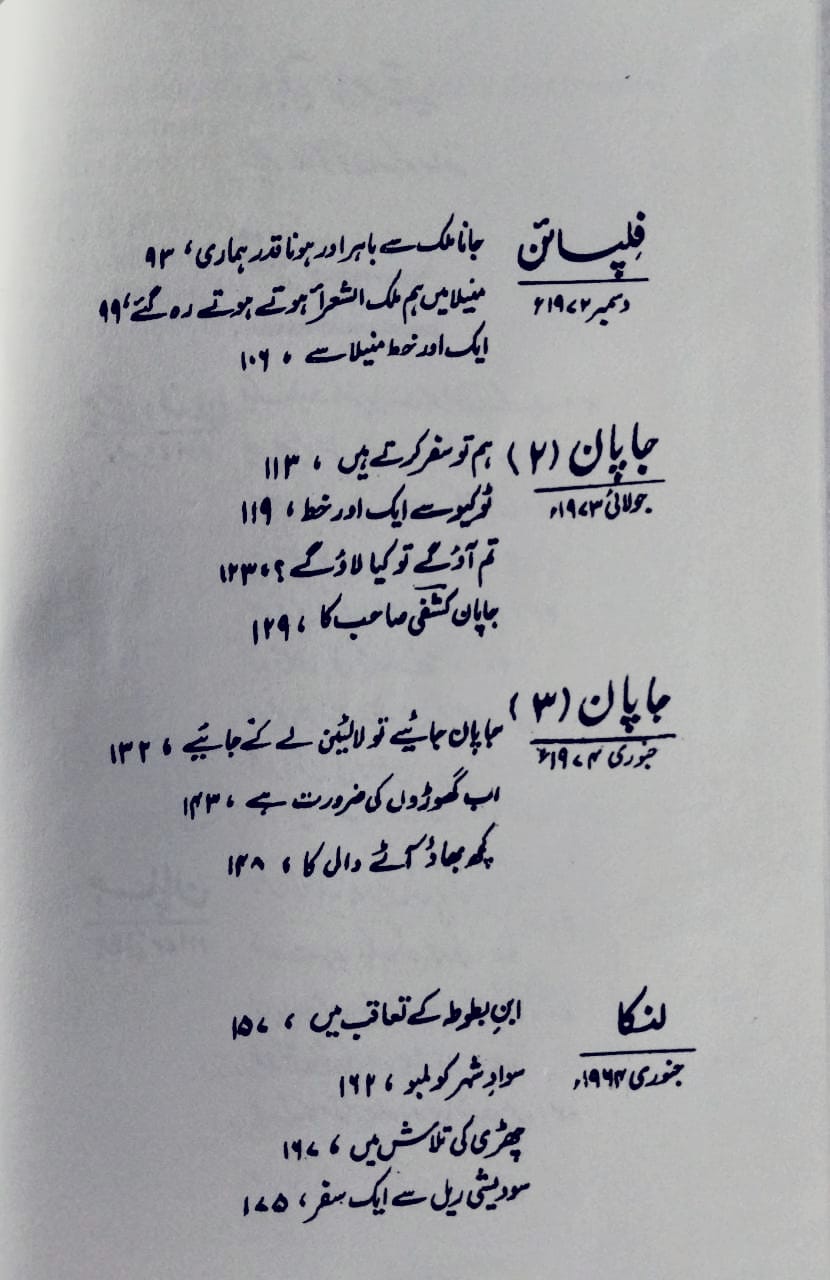 فلپائن
دسمبر ۱۹۷۲ء
جانا ملک سے باہر اور ہونا قدر ہماری ، ۹۳
منیلا میں ہم ملک الشعرأ ہوتے ہوتے رہ گئے ، ۹۹
ایک اور خط منیلا سے ، ۱۰۶
جاپان (۲)
جولائی ۱۹۷۳ء
ہم تو سفر کرتے ہیں ، ۱۱۳
ٹوکیو سے ایک اور خط ، ۱۱۹
تم آؤ گے تو کیا لاؤ گے ؟ ، ۱۲۳
جاپان کشفی صاحب کا ، ۱۲۹
جاپان (۳)
جنوری ۱۹۷۴ء
جاپان جائیے تو لالٹین لے کے جائیے ، ۱۳۲
اب گھوڑوں کی ضرورت ہے ، ۱۴۳
کچھ بھاؤ آٹے دال کا ، ۱۴۸
لنکا
جنوری ۱۹۶۴ء
ابنِ بطوطہ کے تعاقب میں ، ۱۵۷
سوادِ شہر کولمبو ، ۱۶۲
چھڑی کی تلاش میں ، ۱۶۷
سودیشی ریل سے ایک سفر ، ۱۷۵